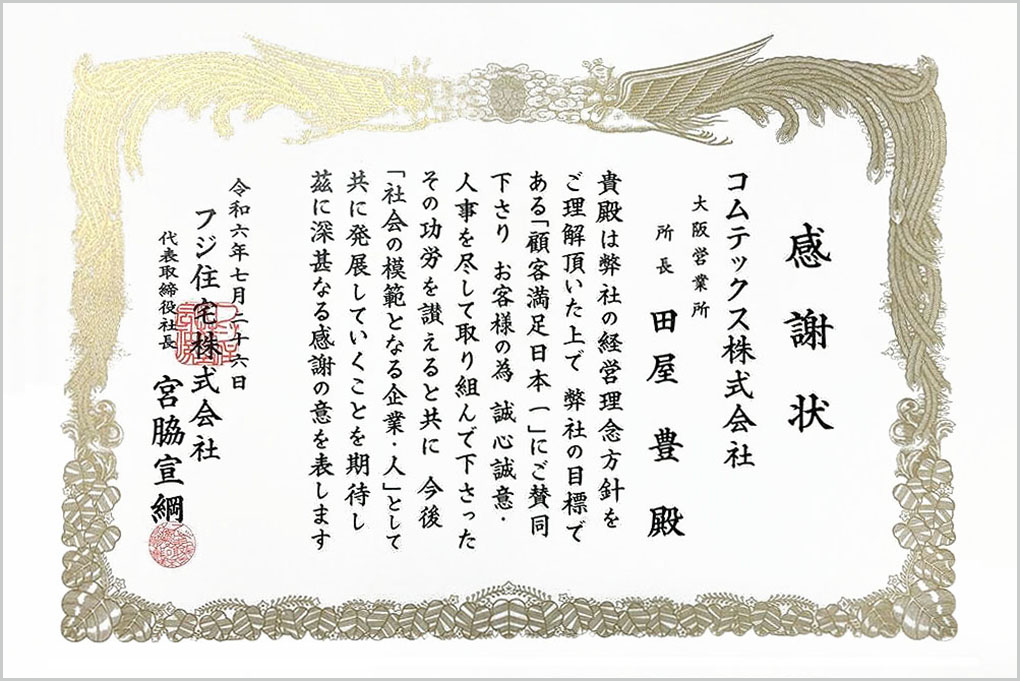 感謝状
コムテックス株式会社
大阪営業所
所長 田屋 豊 殿
貴殿は弊社の経営理念方針を
ご理解頂いた上で 弊社の目標で
ある「顧客満足日本一」にご賛同
下さり お客様の為 誠心誠意・
人事を尽して取り組んで下さった
その功労を讃えると共に 今後
「社会の模範となる企業・人」として
共に発展していくことを期待し
茲に深甚なる感謝の意を表します
令和六年七月二十六日
フジ住宅株式会社
代表取締役社長 宮脇宣綱